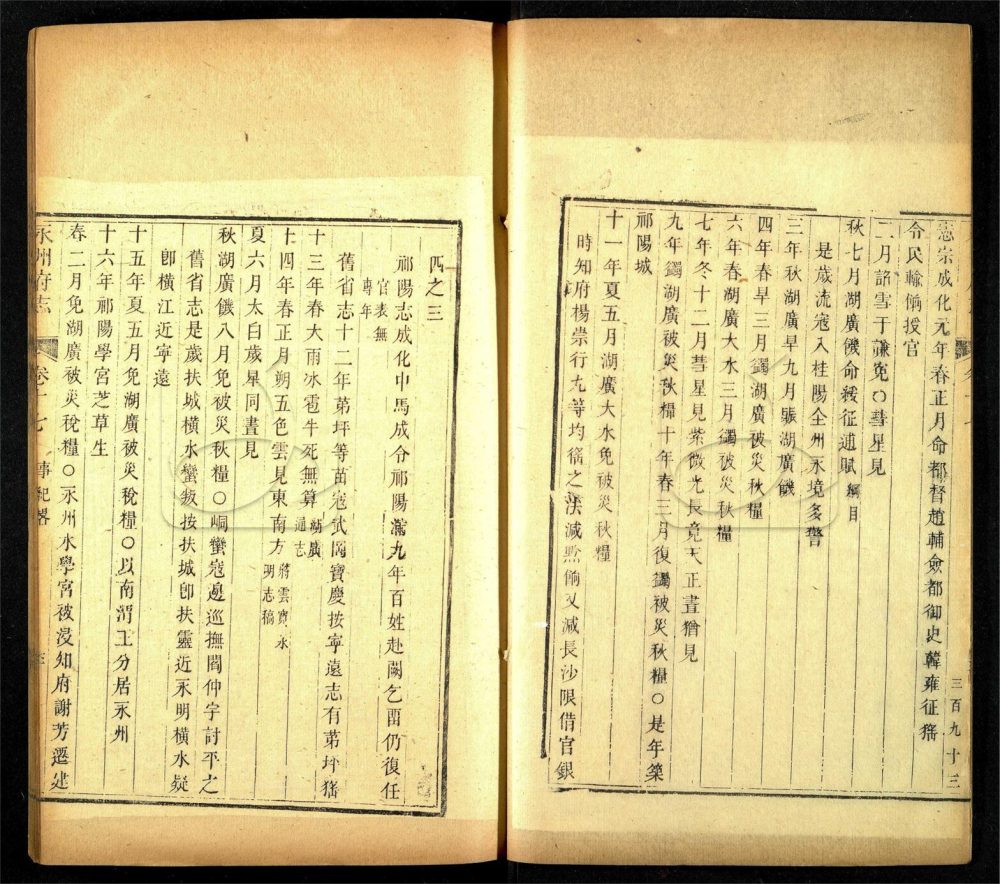 憲宗成化元年春正月命都督趙輔僉都御史韓雍征猺
令民輸備授官
二月詔雪于謙冤○彗星見
秋七月湖廣饑命緩征逋賦綱目
是歲流寇入桂陽全州永境多警
三年秋湖廣旱九月賑湖廣饑
四年春旱三月蠲湖廣被災秋糧
六年春湖廣大水三月蠲被災秋糧
七年冬十二月彗星見紫微光長竟天正晝猶見
九年蠲湖廣被災秋糧十年春三月復蠲被災秋糧○是年築
祁陽城
十一年夏五月湖廣大水免被災秋糧
時知府楊崇行九等均徭之法減點備又減長沙限借官銀
三百九十三
四之三
祁陽志成化中馬成令祁陽滿九年百姓赴闕乞畱仍復任
官表無
專年
舊省志十二年苐坪等苗寇武岡寶慶按寧遠志有苐坪猺
十三年春大雨冰雹牛死無算湖廣通志
十四年春正月朔五色雲見東南方蔣雲寬永明志稿
夏六月太白歲星同晝見
秋湖廣饑八月免被災秋糧○峒蠻寇邊巡撫閻仲宇討平之
舊省志是歲扶城橫水蠻叛按扶城卽扶靈近永明橫水疑
卽橫江近寧遠
十五年夏五月免湖廣被災稅糧○以南渭王分居永州
十六年祁陽學宮芝草生
春二月免湖廣被災稅糧○永州水學宮被浸知府謝芳遷建
永州府志 卷十七 事紀畧